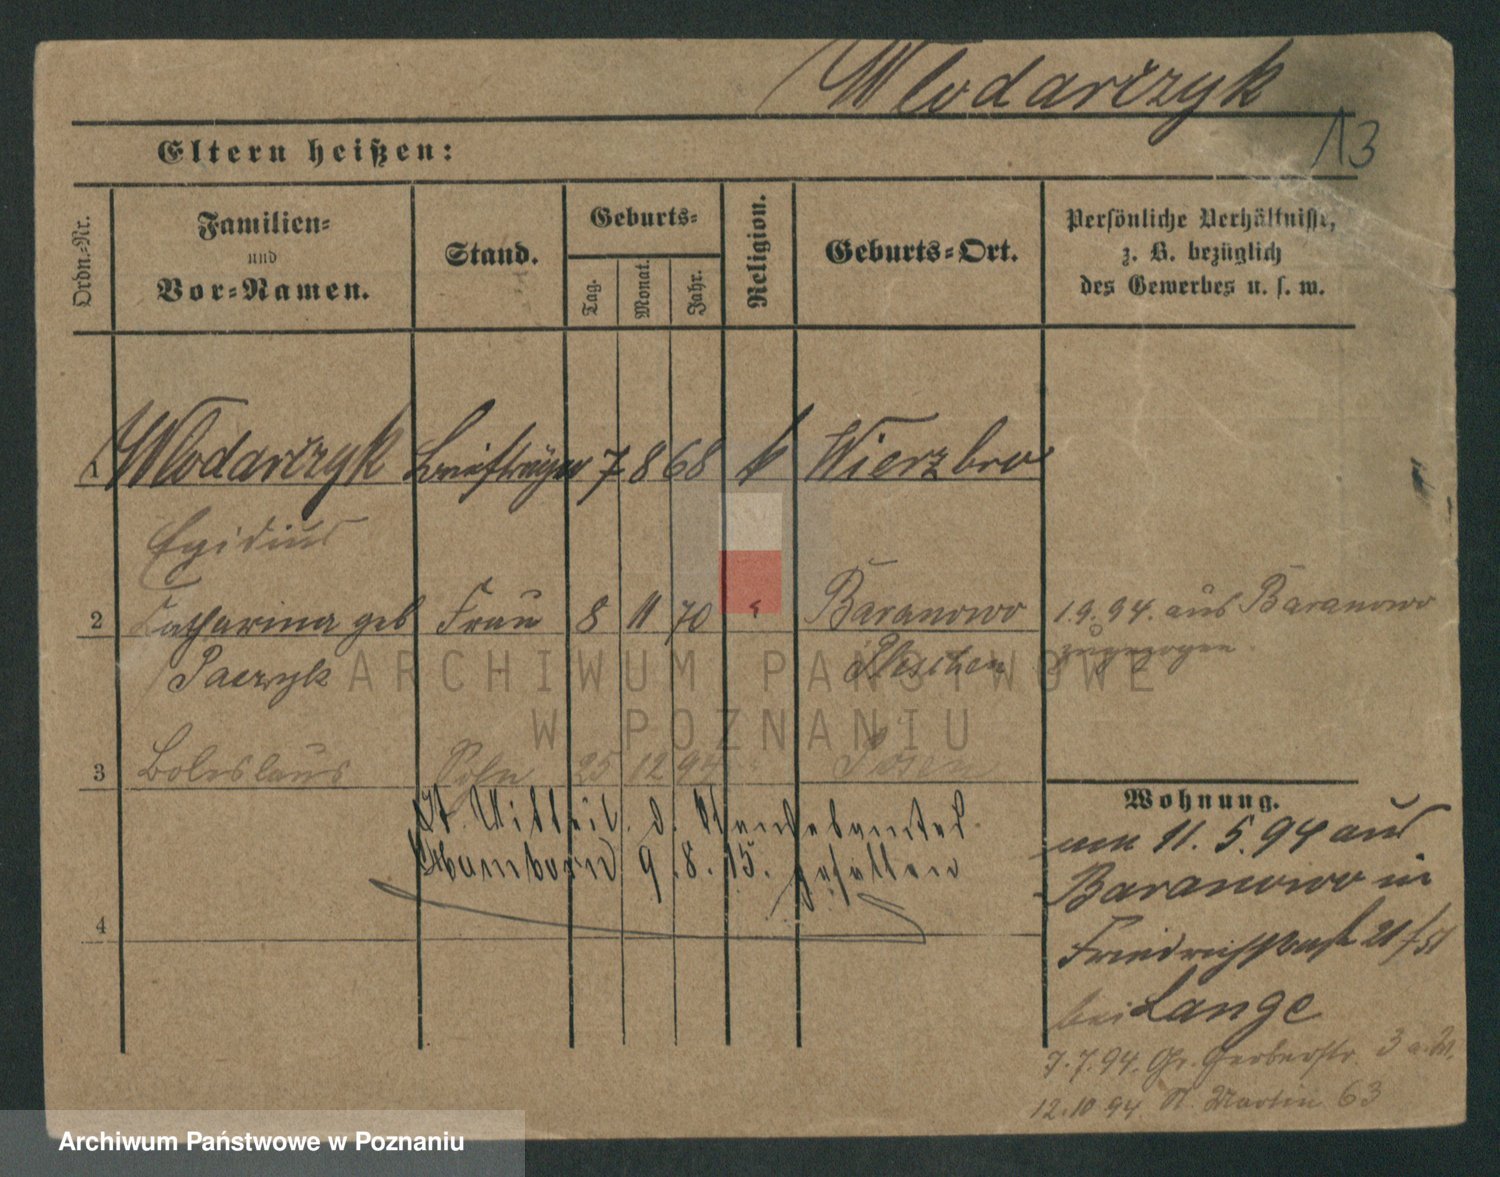 Wlodarczyk
13
Eltern heißen:
Ordn.-Nr.
Familien-
und
Vor-Namen.
Stand.
Geburts-
Tag.
Monat.
Jahr.
Religion.
Geburts-Ort.
Persönliche Verhältnisse,
z. B. bezüglich
des Gewerbes u. s. w.
1 Wlodarczyk Briefträger 7 8 68 k Wierzbno
Egidius
2 Catharina geb Frau 8 11 70 Baranowo 1.9.94. aus Baranowo
Paczzyk Pleschen zugezogen.
3 Boleslaus Sohn 25 12 94 Posen
Lt. Mitteil. d. Standesamtes
Hamborn 9.8.15. gefallen
4
Wohnung.
am 11.5.94 aus
Baranowo in
Friedrichstraße 21
bei Lange
7.7.94. Gr. Gerberstr. 3
12.10 94 St. Martin 63
ARCHIWUM PAŃSTWOWE
W POZNANIU
Archiwum Państwowe w Poznaniu